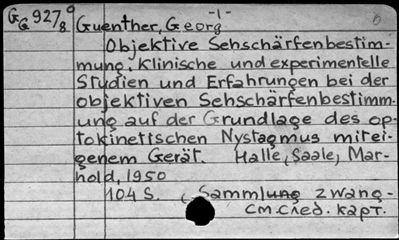 GG 927/8 Guenther, Georg -1-
Objektive Sehschärfenbestim-
mung. Klinische und experimentelle
Studien und Erfahrungen bei der
objektiven Sehschärfenbestimm-
ung auf der Grundlage des op-
tokinetischen Nystagmus mitei-
genem Gerät. Halle, Saale, Mar-
hold, 1950
104 S. (Sammlung zwang-
см.след. карт.